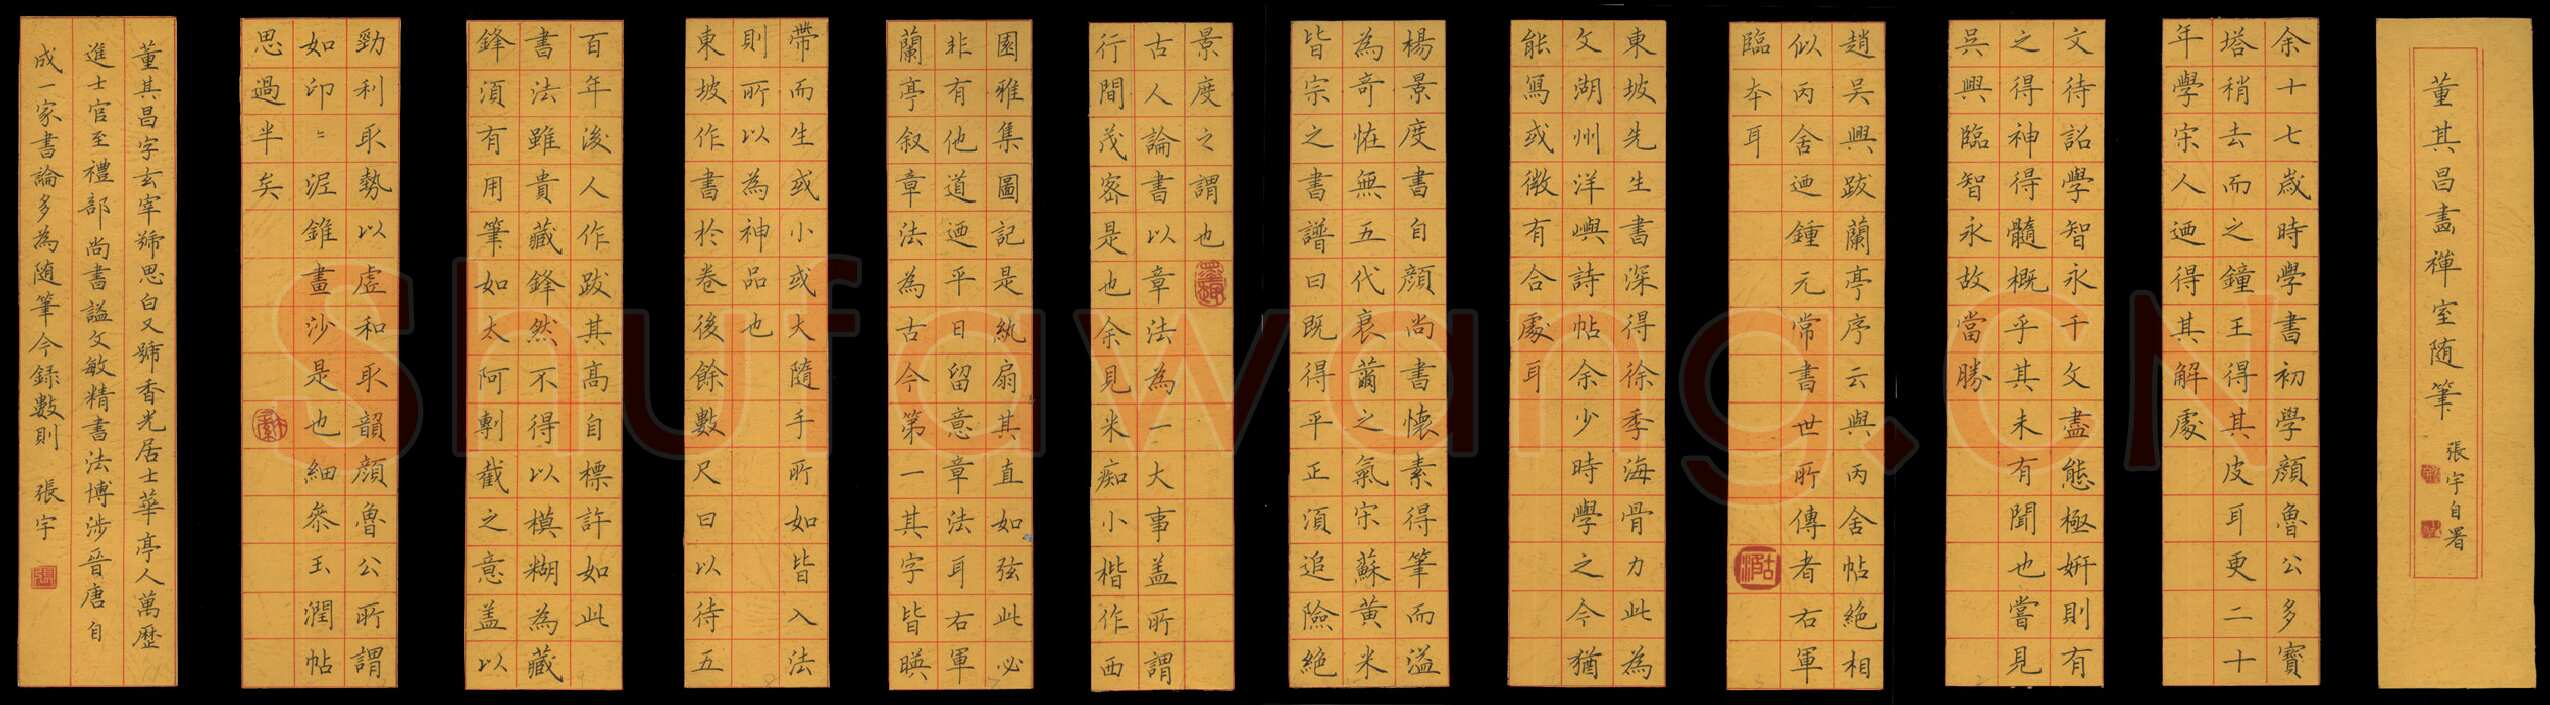 董其昌畫禅室随筆
張宇自署
余十七歳時學書初學顔魯公多寶
塔稍去而之鐘王得其皮耳更二十
年學宋人迺得其解處
文待詔學智永千文盡態極妍則有
之得神得髓概乎其未有聞也嘗見
吳興臨智永故當勝
趙吳興跋蘭亭序云與丙舍帖絶相
似丙舍迺鍾元常書世所傳者右軍
臨本耳
東坡先生書深得徐季海骨力此為
文湖州洋嶼詩帖余少時學之今猶
能寫或微有合處耳
楊景度書自顔尚書懷素得筆而溢
為奇恠無五代衰薾之氣宋蘇黄米
皆宗之書譜曰既得平正須追險絶
景度之謂也
古人論書以章法為一大事盖所謂
行間茂密是也余見米痴小楷作西
園雅集圖記是紈扇其直如弦此必
非有他道迺平日留意章法耳右軍
蘭亭叙章法為古今第一其字皆暎
帶而生或小或大隨手所如皆入法
則所以為神品也
東坡作書於卷後餘數尺曰以待五
百年後人作跋其高自標許如此
書法雖貴藏鋒然不得以模糊為藏
鋒須有用筆如太阿剸截之意盖以
勁利取勢以虛和取韻顔魯公所謂
如印=泥錐畫沙是也細參玉潤帖
思過半矣
董其昌字玄宰號思白又號香光居士華亭人萬歷
進士官至禮部尚書謚文敏精書法博涉晉唐自
成一家書論多為随筆今録數則 張宇
Shufawang.CN